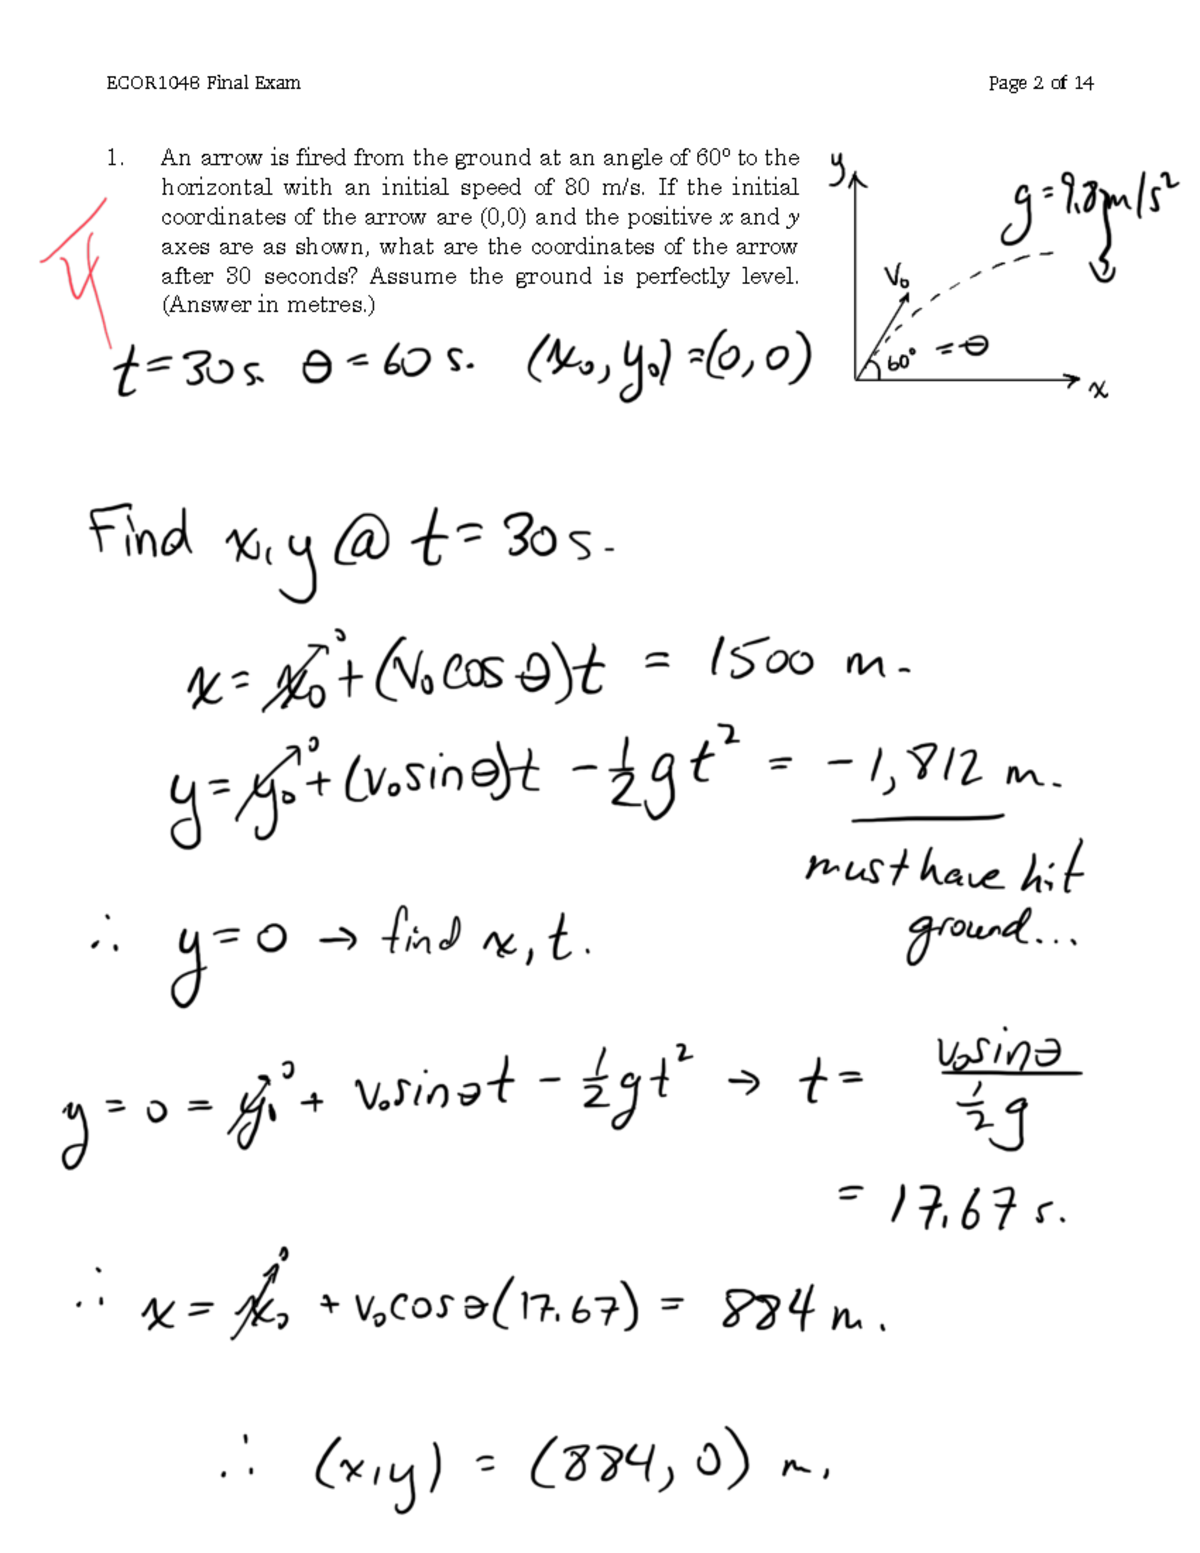 ECOR1048 Final Exam Page 2 of 14
1. An arrow is fired from the ground at an angle of 60° to the
horizontal with an initial speed of 80 m/s. If the initial
coordinates of the arrow are (0,0) and the positive x and y
axes are as shown, what are the coordinates of the arrow
after 30 seconds? Assume the ground is perfectly level.
(Answer in metres.)
y
g = 9.8 m/s²
V₀
60° = θ
x
t = 30 s. θ = 60 s. (x₀, y₀) = (0, 0)
Find x, y @ t = 30 s.
x = x₀⁰ + (V₀ cos θ)t = 1500 m.
y = y₀⁰ + (V₀ sin θ)t - ½gt² = -1,812 m.
must have hit
ground...
∴ y = 0 → find x, t.
y = 0 = y₀⁰ + V₀ sin θ t - ½gt² → t = V₀ sin θ / ½g
= 17.67 s.
∴ x = x₀⁰ + V₀ cos θ (17.67) = 884 m.
∴ (x, y) = (884, 0) m.